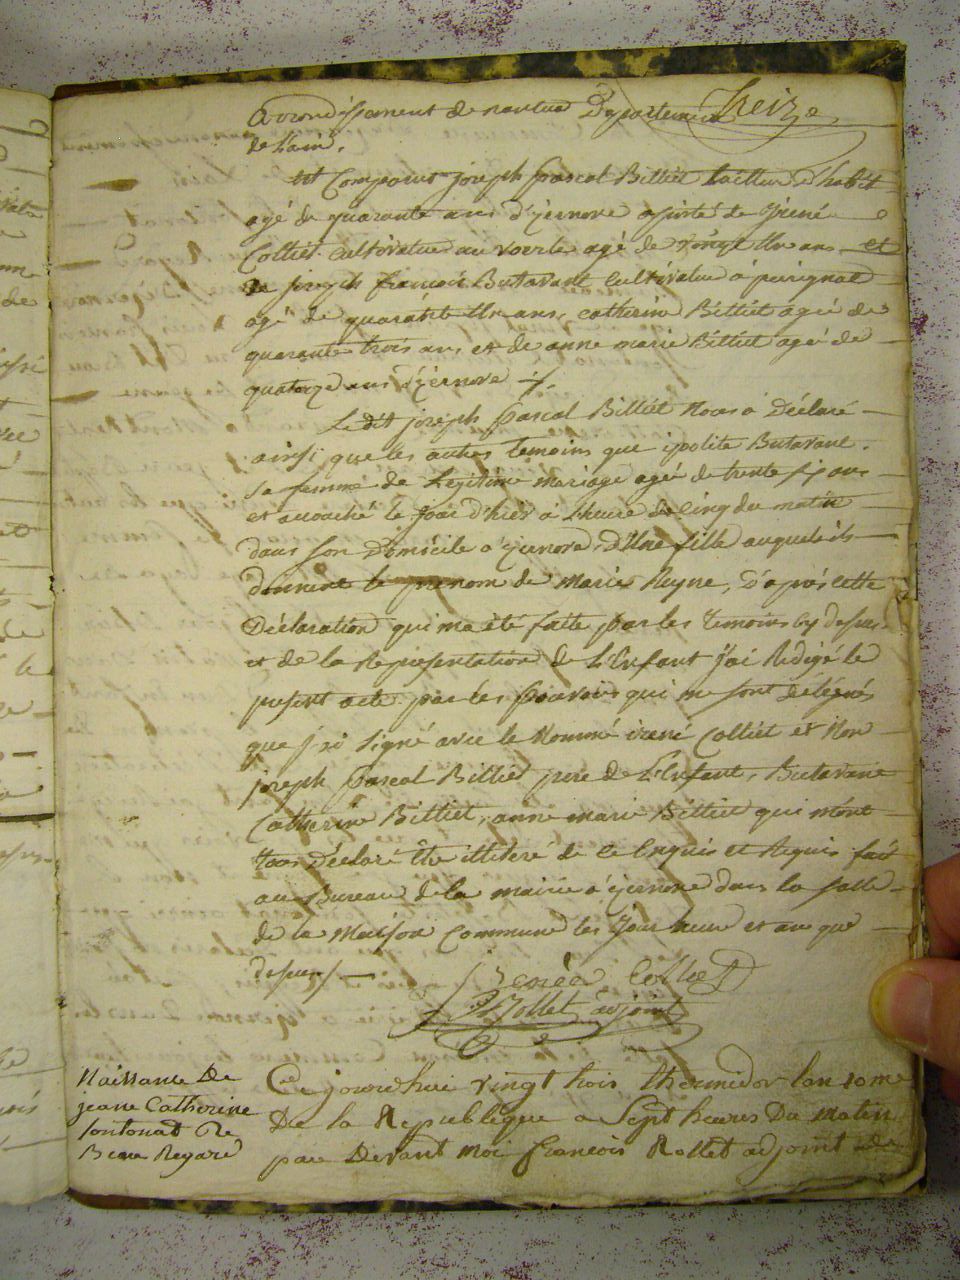 Treize
arrondissement de nantua Departement
de Lain.
est Comparus joseph pascal Billiet tailleur d'habit
agé de quarante ans d'izernore assisté de
Colliet Cultivateur au voerle agé de ans et
de joseph francois Butavant Cultivateur à perignat
agé de quarante Un ans, catherine Billiet agée de
quarante trois ans et de anne marie Billiet agée de
quatorze ans d'izernore
Le dit joseph pascal Billiet Nous à Déclaré
ainsi que les autres temoins que ipolite Butavane
Sa femme de Legitime mariage agée de trente six ans
et accouché le jour d'hier à Lheure de cinq du matin
dans son Domicile à izernore, d'Une fille auquele ils
donnent le prenom de marie Reyne, D'après cette
Déclaration qui ma été faitte par les Temoins cy desus
et de la Representation de L'Enfant J'ai Redigé le
present acte par les pouvoirs qui me sont délégués
que j'ai signé avec le Nommé irené Colliet et Non
joseph pascal Billied pere de L'Enfant, Butavane
Catherine Billiet, anne marie Billiet qui m'ont
tous Déclaré être illitéré de ce Enquis et Requis fait
au Bureau de la mairie à izernore dans la Salle
de la Maison Commune les Jour heure et an que
desus
Colliet
Rollet adjoint
Naissance De
jeane Catherine
fontonat De
Beau Regard
Ce jourdhui vingt trois thermidor lan 10me
De la Republique a Sept heures Du Maten
par Devant Moi francois Rollet adjoint de